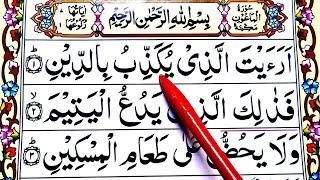 سُورَةُ الْمَاعُونِ مَكِّيَّةٌ
بِسْمِ اللّٰهِ الرَّحْمٰنِ الرَّحِيْمِ
اٰيَاتُهَا ٧
اَرَءَيْتَ الَّذِىْ يُكَذِّبُ بِالدِّيْنِ ۝١
فَذٰلِكَ الَّذِىْ يَدُعُّ الْيَتِيْمَ ۝٢
وَلَا يَحُضُّ عَلٰى طَعَامِ الْمِسْكِيْنِ ۝٣